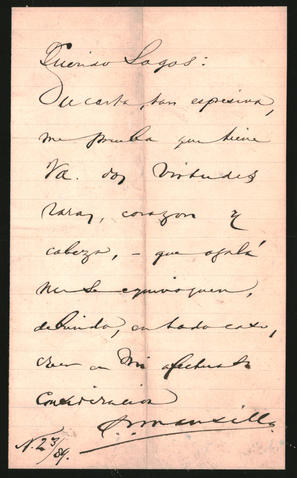 Querido Lagos:
Su carta, tan espresiva,
me prueba que tiene
Va. dos virtudes
raras, corazon y
cabeza, - que ojalá
no se equivoquen,
debiendo, en todo caso,
creer en mi afectuosa
consideracion
L. V. Mansilla
N. 23/89.